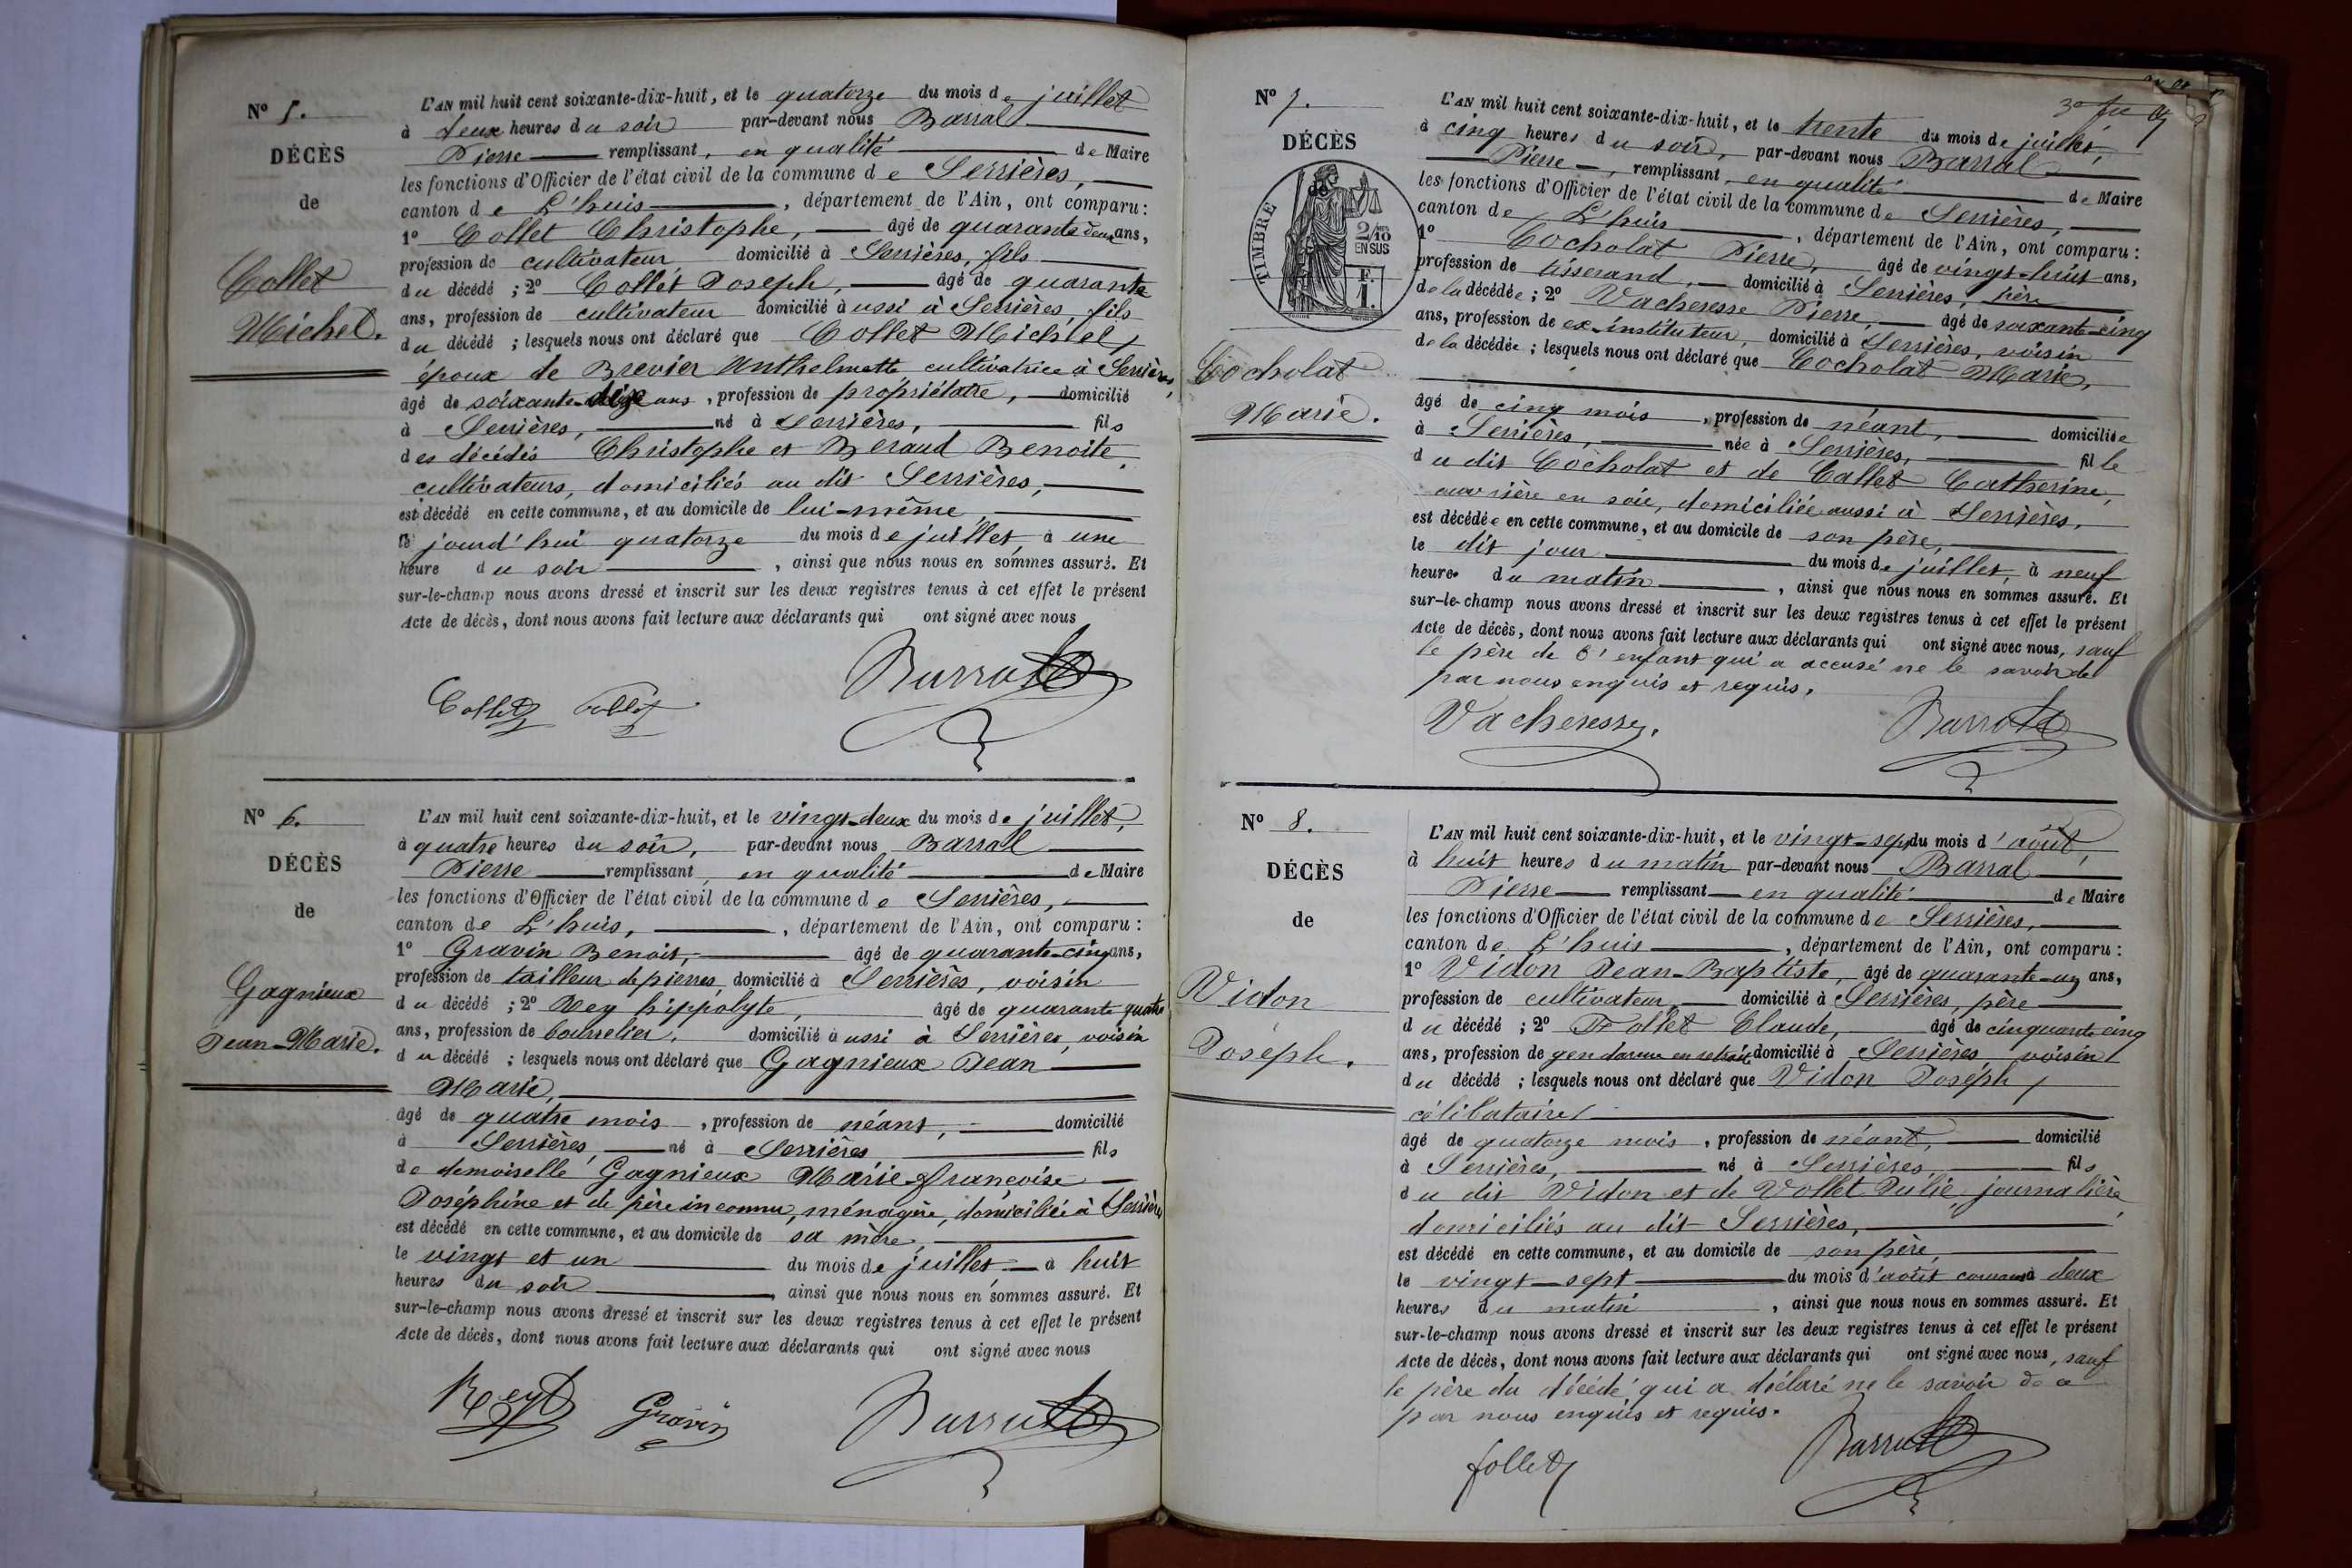 N° 5.
DÉCÈS
de
Collet
Michel.
L'AN mil huit cent soixante-dix-huit, et le quatorze du mois de juillet
à deux heures du soir par-devant nous Barral
Pierre remplissant, en qualité de Maire
les fonctions d'Officier de l'état civil de la commune de Serrières,
canton de L'huis, département de l'Ain, ont comparu :
1° Collet Christophe, âgé de quarante deux ans,
profession de cultivateur domicilié à Serrières, fils
du décédé ; 2° Collet Joseph, âgé de quarante
ans, profession de cultivateur domicilié aussi à Serrières, fils
du décédé ; lesquels nous ont déclaré que Collet Michel,
époux de Brevier Anthelmette cultivatrice à Serrières,
âgé de soixante ans, profession de propriétaire, domicilié
à Serrières, né à Serrières, fils
des décédés Christophe et Beraud Benoite,
cultivateurs, domiciliés au dit Serrières,
est décédé en cette commune, et au domicile de lui-même,
jourd'hui quatorze du mois de juillet, à une
heure du soir, ainsi que nous nous en sommes assuré. Et
sur-le-champ nous avons dressé et inscrit sur les deux registres tenus à cet effet le présent
Acte de décès, dont nous avons fait lecture aux déclarants qui ont signé avec nous
Collet Collet Barral
N° 6.
DÉCÈS
de
Gagnieux
Jean-Marie.
L'AN mil huit cent soixante-dix-huit, et le vingt-deux du mois de juillet,
à quatre heures du soir, par-devant nous Barral
Pierre remplissant, en qualité de Maire
les fonctions d'Officier de l'état civil de la commune de Serrières,
canton de L'huis, département de l'Ain, ont comparu :
1° Gravin Benoit, âgé de quarante-cinq ans,
profession de tailleur de pierres, domicilié à Serrières, voisin
du décédé ; 2° Rey hippolyte, âgé de quarante quatre
ans, profession de bourrelier, domicilié aussi à Serrières, voisin
du décédé ; lesquels nous ont déclaré que Gagnieux Jean
Marie,
âgé de quatre mois, profession de néant, domicilié
à Serrières, né à Serrières fils
de demoiselle Gagnieux Marie-françoise
Joséphine et de père inconnu, ménagère, domiciliée à Serrières
est décédé en cette commune, et au domicile de sa mère,
le vingt et un du mois de juillet, à huit
heures du soir, ainsi que nous nous en sommes assuré. Et
sur-le-champ nous avons dressé et inscrit sur les deux registres tenus à cet effet le présent
Acte de décès, dont nous avons fait lecture aux déclarants qui ont signé avec nous
Rey Gravin Barral
N° 7.
DÉCÈS
de
TIMBRE
2/10
EN SUS
F.
1.
Cocholat
Marie.
L'AN mil huit cent soixante-dix-huit, et le trente du mois de juillet,
à cinq heures du soir, par-devant nous Barral
Pierre, remplissant, en qualité de Maire
les fonctions d'Officier de l'état civil de la commune de Serrières,
canton de L'huis, département de l'Ain, ont comparu :
1° Cocholat Pierre, âgé de vingt-huit ans,
profession de tisserand, domicilié à Serrières, père
de la décédée ; 2° Vacheresse Pierre, âgé de soixante-cinq
ans, profession de ex-instituteur, domicilié à Serrières, voisin
de la décédée ; lesquels nous ont déclaré que Cocholat Marie,
âgé de cinq mois, profession de néant, domiciliée
à Serrières, née à Serrières, fille
du dit Cocholat et de Callet Catherine,
ouvrière en soie, domiciliée aussi à Serrières,
est décédée en cette commune, et au domicile de son père,
le dit jour du mois de juillet, à neuf
heures du matin, ainsi que nous nous en sommes assuré. Et
sur-le-champ nous avons dressé et inscrit sur les deux registres tenus à cet effet le présent
Acte de décès, dont nous avons fait lecture aux déclarants qui ont signé avec nous, sauf
le père de l'enfant qui a accusé ne le savoir de
par nous enquis et requis.
Vacheresse. Barral
N° 8.
DÉCÈS
de
Vidon
Joseph.
L'AN mil huit cent soixante-dix-huit, et le vingt-sept du mois d'août,
à huit heures du matin par-devant nous Barral
Pierre remplissant en qualité de Maire
les fonctions d'Officier de l'état civil de la commune de Serrières,
canton de L'huis, département de l'Ain, ont comparu :
1° Vidon Jean-Baptiste, âgé de quarante-un ans,
profession de cultivateur domicilié à Serrières, père
du décédé ; 2° Follet Claude, âgé de cinquante cinq
ans, profession de gendarme en retraite domicilié à Serrières voisin
du décédé ; lesquels nous ont déclaré que Vidon Joseph,
célibataire,
âgé de quatorze mois, profession de néant, domicilié
à Serrières, né à Serrières, fils
du dit Vidon et de Vollet Julie, journalière
domiciliés au dit Serrières,
est décédé en cette commune, et au domicile de son père,
le vingt-sept du mois d'août courant à deux
heures du matin, ainsi que nous nous en sommes assuré. Et
sur-le-champ nous avons dressé et inscrit sur les deux registres tenus à cet effet le présent
Acte de décès, dont nous avons fait lecture aux déclarants qui ont signé avec nous, sauf
le père du décédé qui a déclaré ne le savoir de ce
par nous enquis et requis.
follet Barral